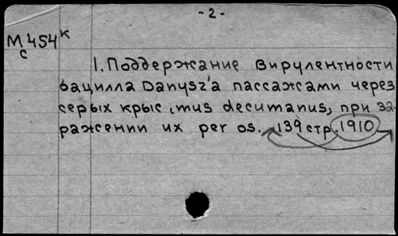 -2-
М с 454к
1. Поддержание вирулентности
бацилла Danysz'a пассажами через
серых крыс, mus decumanus, при за-
ражении их per os. 139 стр. 1910